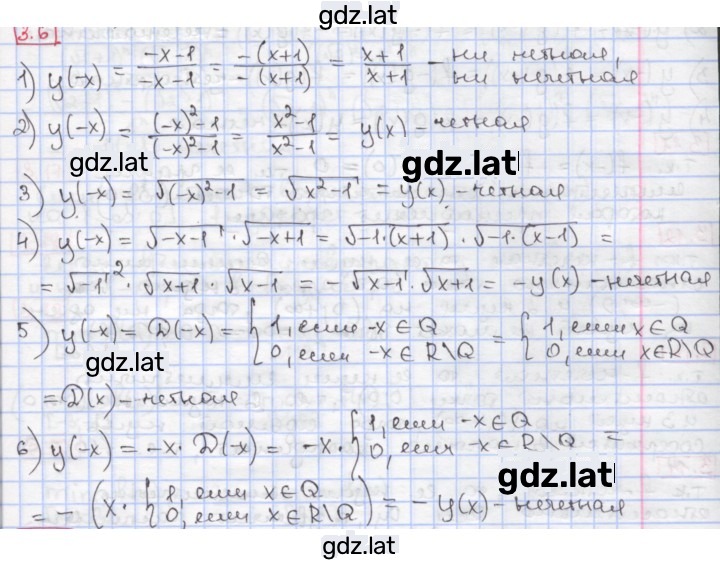 gdz.lat
3.6
1) y(-x) = \frac{-x-1}{-x-1} = \frac{-(x+1)}{-(x+1)} = \frac{x+1}{x+1} - ни четная, ни нечетная
2) y(-x) = \frac{(-x)^2-1}{(-x)^2-1} = \frac{x^2-1}{x^2-1} = y(x) - четная
gdz.lat
gdz.lat
3) y(-x) = √((-x)^2-1) = √(x^2-1) = y(x) - четная
4) y(-x) = √(-x-1) · √(-x+1) = √(-1·(x+1)) · √(-1·(x-1)) =
= √(-1)^2 · √(x+1) · √(x-1) = -√(x-1) · √(x+1) = -y(x) - нечетная
5) y(-x) = D(-x) = { 1, если -x ∈ Q 0, если -x ∈ R\Q = { 1, если x ∈ Q 0, если x ∈ R\Q
gdz.lat
= D(x) - четная
6) y(-x) = -x · D(-x) = -x · { 1, если -x ∈ Q 0, если -x ∈ R\Q =
gdz.lat
= -(x · { 1, если x ∈ Q 0, если x ∈ R\Q) = -y(x) - нечетная
gdz.lat